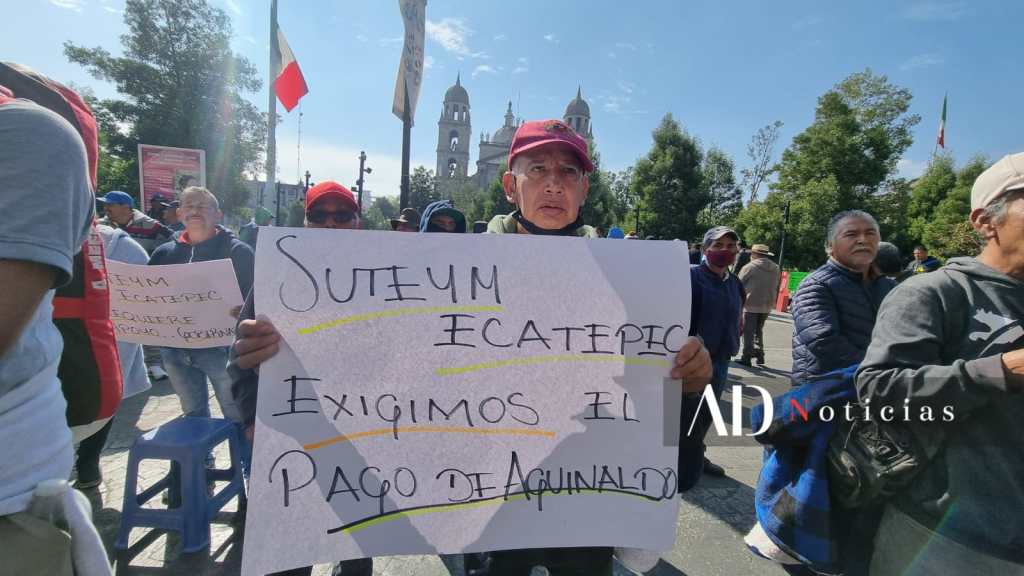 SUTEYM
ECATEPEC
EXIGIMOS EL
PAGO DE AGUINALDO
ECATEPEC
AD Noticias